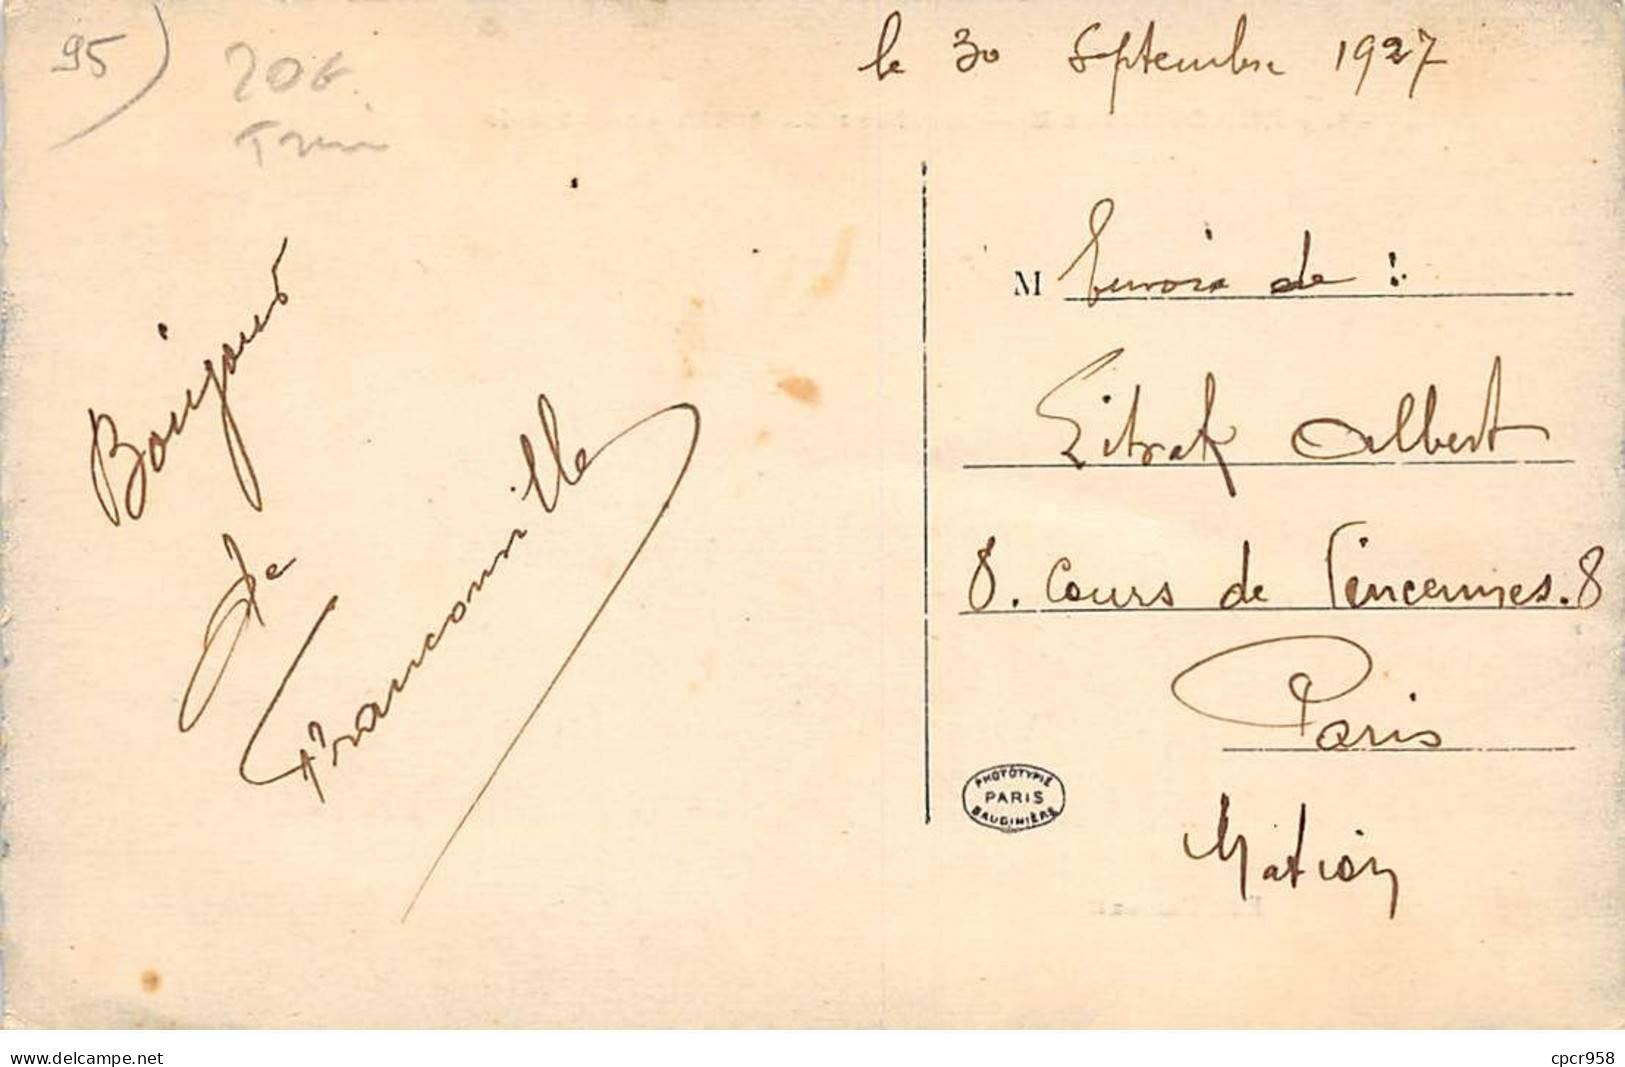 95)
20€
Train
le 30 Septembre 1927
Bonjour
de
Franconville
M Envoi de :
Litrak Albert
8. Cours de Vincennes. 8
Paris
PHOTOTYPIE
PARIS
BAUDINIÈRE
www.delcampe.net
cpcr958